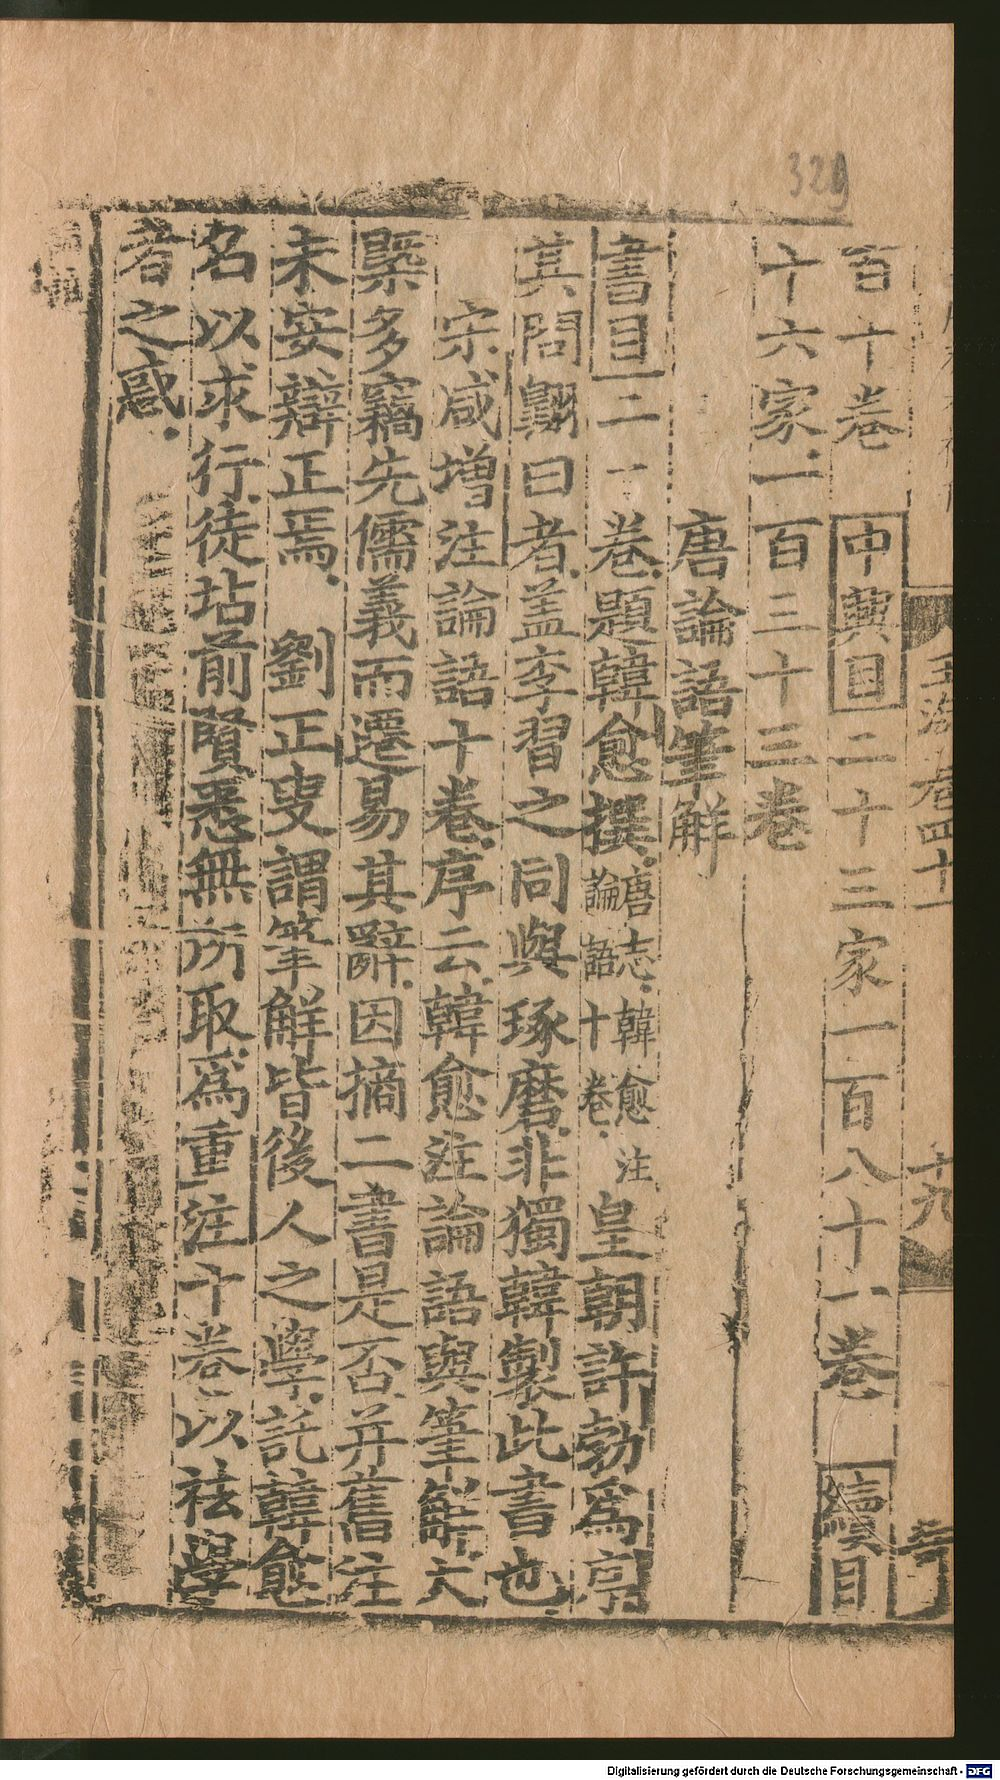 329
玉海卷四十一
十九
百十卷 中興目 二十三家一百八十一卷 續目
十六家一百三十三卷
唐論語筆解
書目二一卷題韓愈撰唐志韓愈注論語十卷皇朝許勃爲序
其問翺曰者蓋李習之同與琢磨非獨韓製此書也
宋咸增注論語十卷序云韓愈注論語與筆解大
槩多竊先儒義而遷易其辭因摘二書是否并舊注
未安辯正焉 劉正叟謂筆解皆後人之學託韓愈
名以求行徒玷前賢悉無所取爲重注十卷以祛學
者之惑
Digitalisierung gefördert durch die Deutsche Forschungsgemeinschaft - DFG